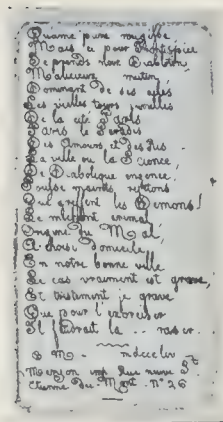 Qu'ame pure rougisse
Mais ci pour Frontispice
Je prends noir Diablotin
Malicieux mutin
Dominant de ses ailes
Les vieilles tours jumelles
De la cité Paris
Paradis
Des Amours, et Des Ris
La ville ou la Science,
De Diabolique engence,
rejettons
Qui greffent les Démons!
Ce méchant animal
Origine du Mal,
A choisi Domicile
En notre bonne ville
Le cas vraiment est grave,
Et tristement je grave
Que pour l'exorciser
Il faudrait la .. raser ..
C M - mdcccliv
Meryon imp. Rue neuve St
Etienne-Du-Mont. N° 26